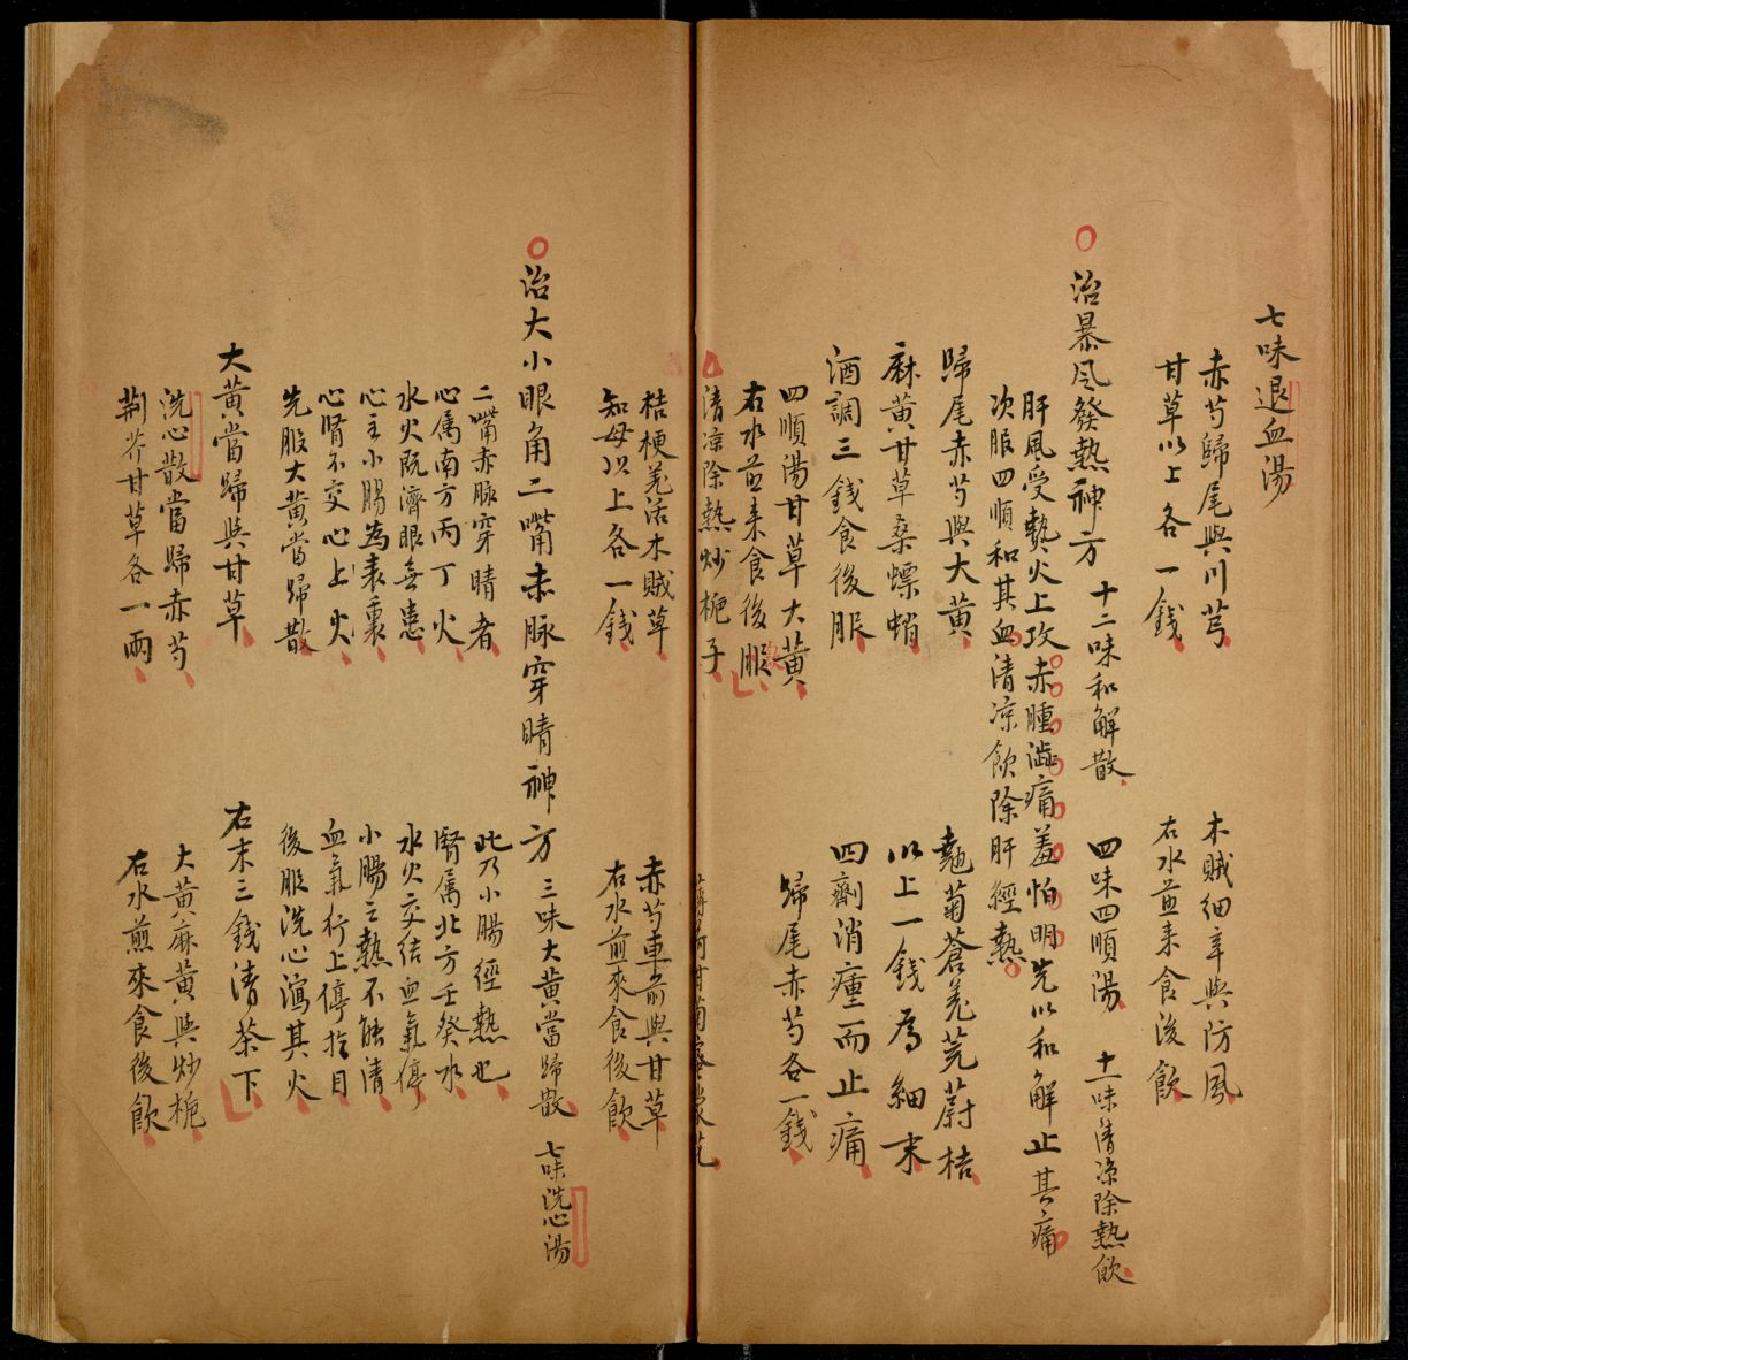 七味退血湯
赤芍歸尾與川芎　木賊細辛與防風
甘草以上各一錢　右水煎来食後飲
治暴风發熱神方　十二味和解散　四味四順湯　十一味清凉除熱飲
肝風受熱火上攻赤腫澁痛羞怕明先以和解止其痛
次服四順和其血清凉飲除肝經熱
歸尾赤芍與大黄　菊蒼羌芫蔚桔
麻黄甘草桑螵蛸　以上一錢為細末
酒調三錢食後服　四劑消瘇而止痛
四順湯甘草大黄　歸尾赤芍各一錢
右水煎来食後服
清凉除熱炒栀子
桔梗羌活木贼草　赤芍車前與甘草
知母以上各一錢　右水煎來食後飲
治大小眼角二嘴赤脉穿睛神方　三味大黄當歸散　七味洗心湯
二嘴赤脉穿睛者　此乃小腸經熱也
心属南方丙丁火　腎属北方壬癸水
水火既濟眼無患　水火交结血氣停
心主小腸為表裏　小腸之熱不能清
心腎不交心上火　血氣行上停於目
先服大黄當歸散　後服洗心瀉其火
大黄當歸與甘草　右末三錢清茶下
洗心散當歸赤芍　大黄麻黄與炒栀
荆芥甘草各一兩　右水煎來食後飲